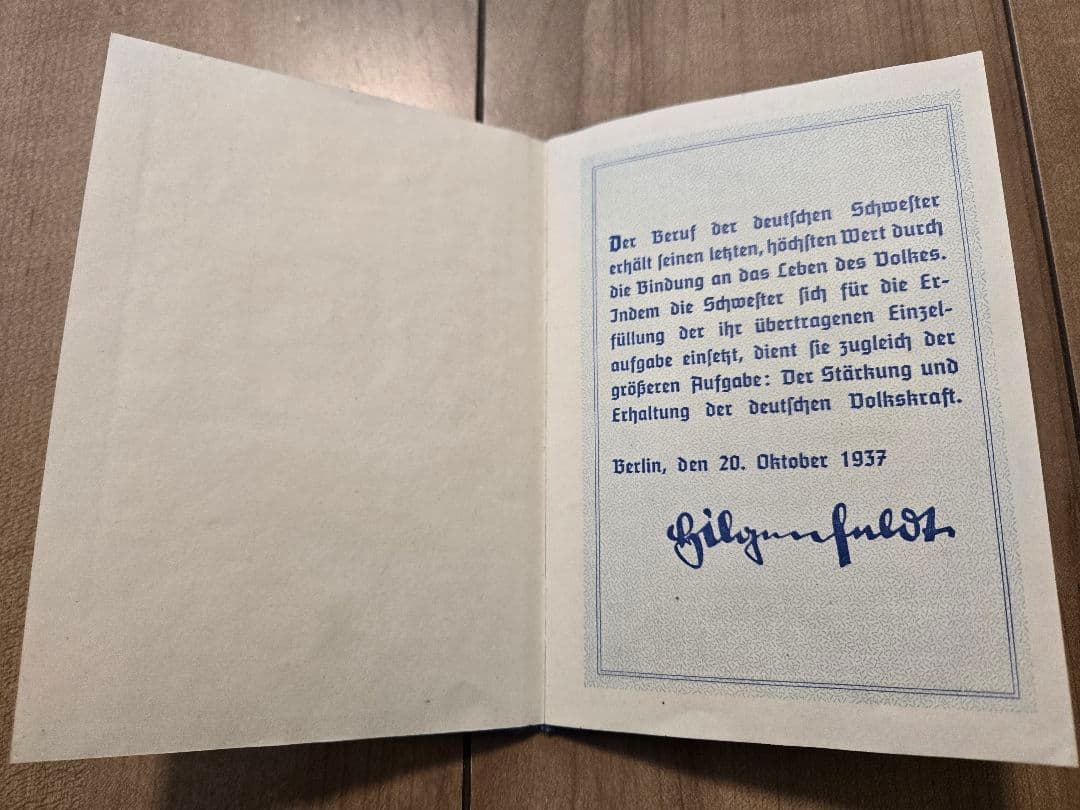 Der Beruf der deutſchen Schweſter
erhält ſeinen letzten, höchſten Wert durch
die Bindung an das Leben des Volkes.
Indem die Schweſter ſich für die Er-
füllung der ihr übertragenen Einzel-
aufgabe einſetzt, dient ſie zugleich der
größeren Aufgabe: Der Stärkung und
Erhaltung der deutſchen Volkskraft.
Berlin, den 20. Oktober 1937
Hilgenfeldt